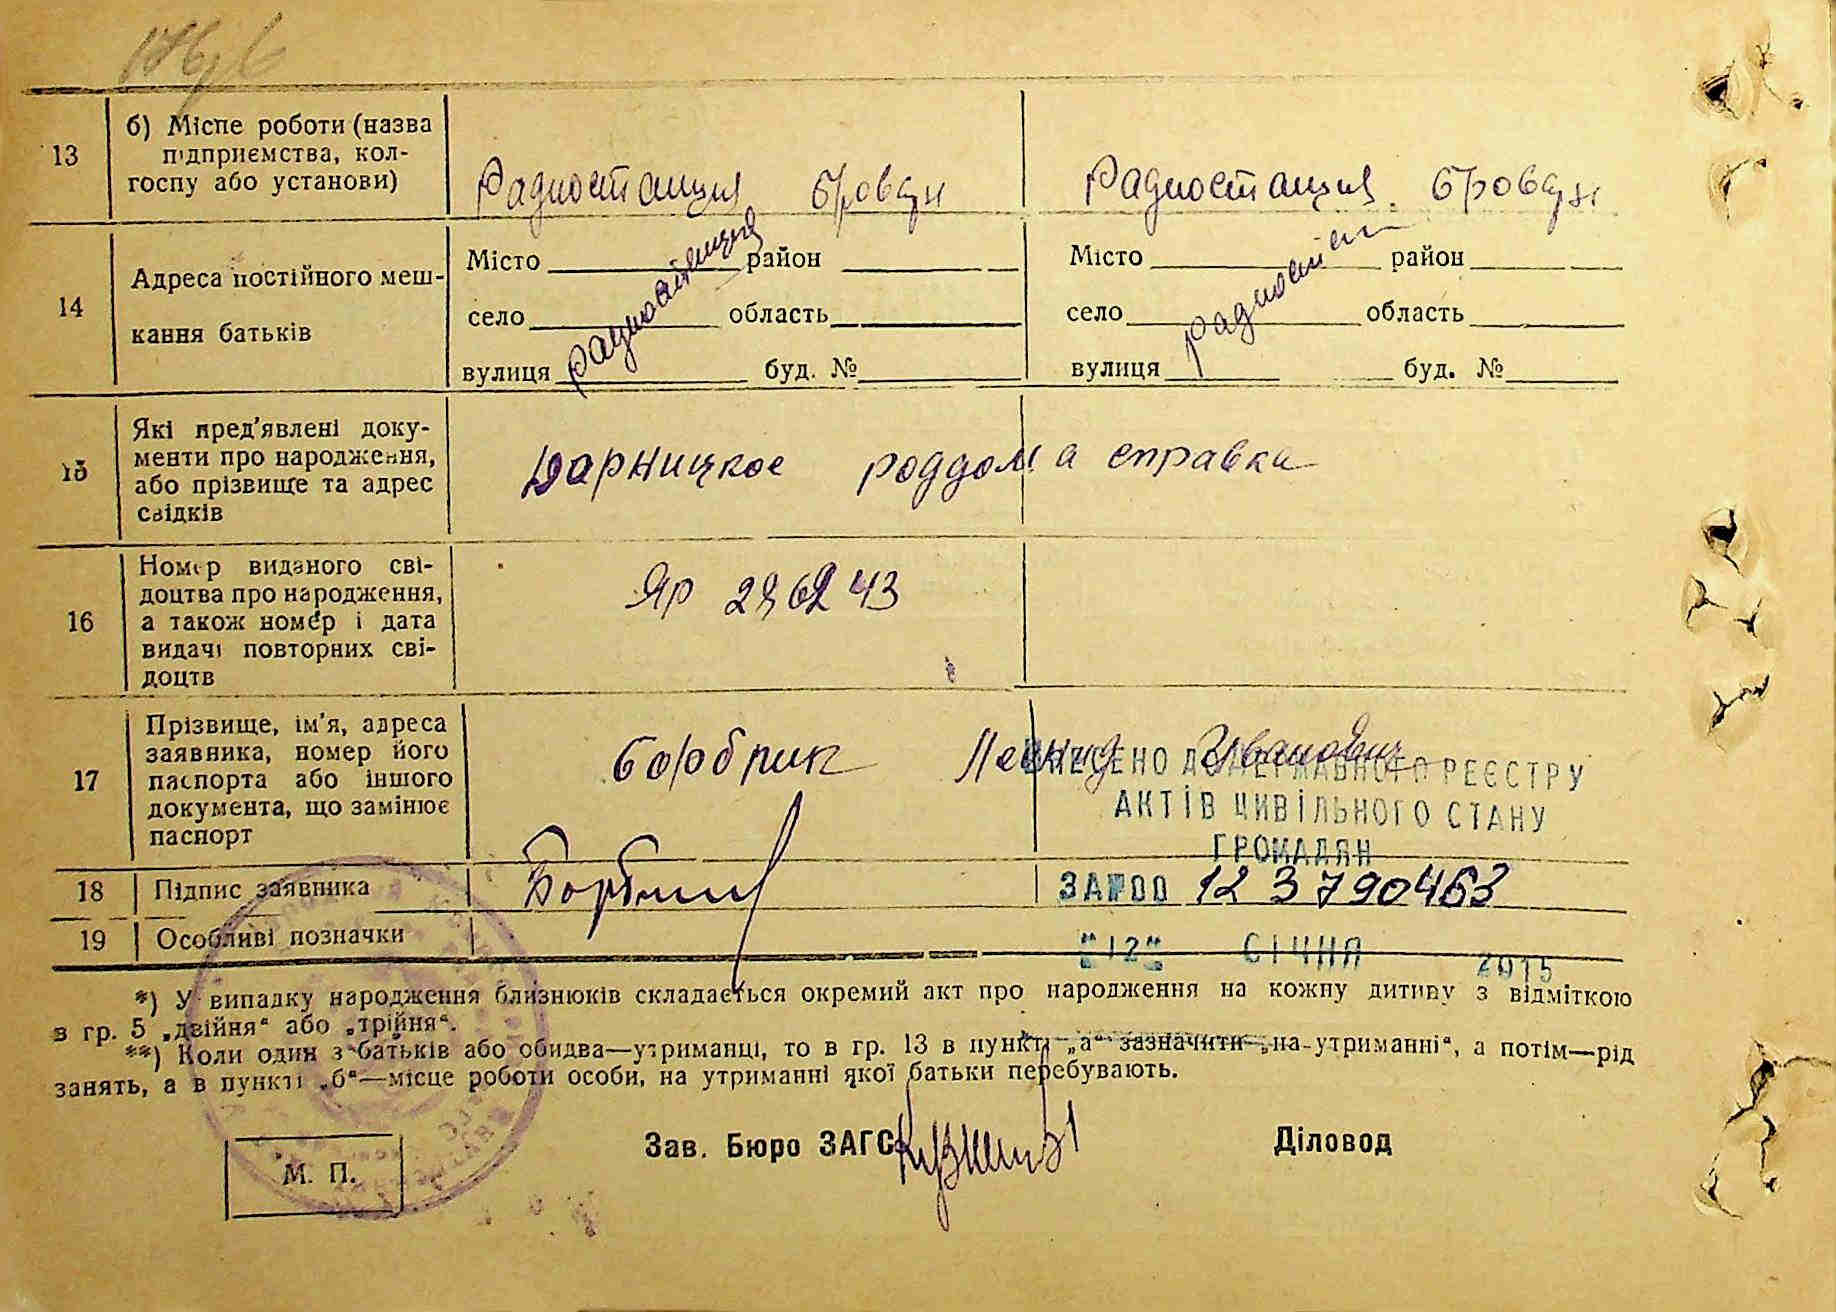 13
б) Місце роботи (назва
підприємства, кол-
госпу або установи)
Радиостанция бровары
Радиостанция бровары
14
Адреса постійного меш-
кання батьків
Місто район
село область
вулиця буд. №
радиостанция
Місто район
село область
вулиця буд. №
15
Які пред'явлені доку-
менти про народження,
або прізвище та адрес
свідків
Дарницкое роддома справка
16
Номер виданого сві-
доцтва про народження,
а також номер і дата
видачі повторних сві-
доцтв
17
Прізвище, ім'я, адреса
заявника, номер його
паспорта або іншого
документа, що замінює
паспорт
Леонид Иванович
ВНЕСЕНО ДО ДЕРЖАВНОГО РЕЄСТРУ
АКТІВ ЦИВІЛЬНОГО СТАНУ
ГРОМАДЯН
18
Підпис заявника
ЗА №00 123790463
19
Особливі позначки
"12" СІЧНЯ 2015
*) У випадку народження близнюків складається окремий акт про народження на кожну дитину з відміткою
в гр. 5 „двійня“ або „трійня“.
**) Коли один з батьків або обидва—утриманці, то в гр. 13 в пункті „а“ зазначити „на утриманні“, а потім—рід
занять, а в пункті „б“—місце роботи особи, на утриманні якої батьки перебувають.
Зав. Бюро ЗАГС
Діловод
М. П.